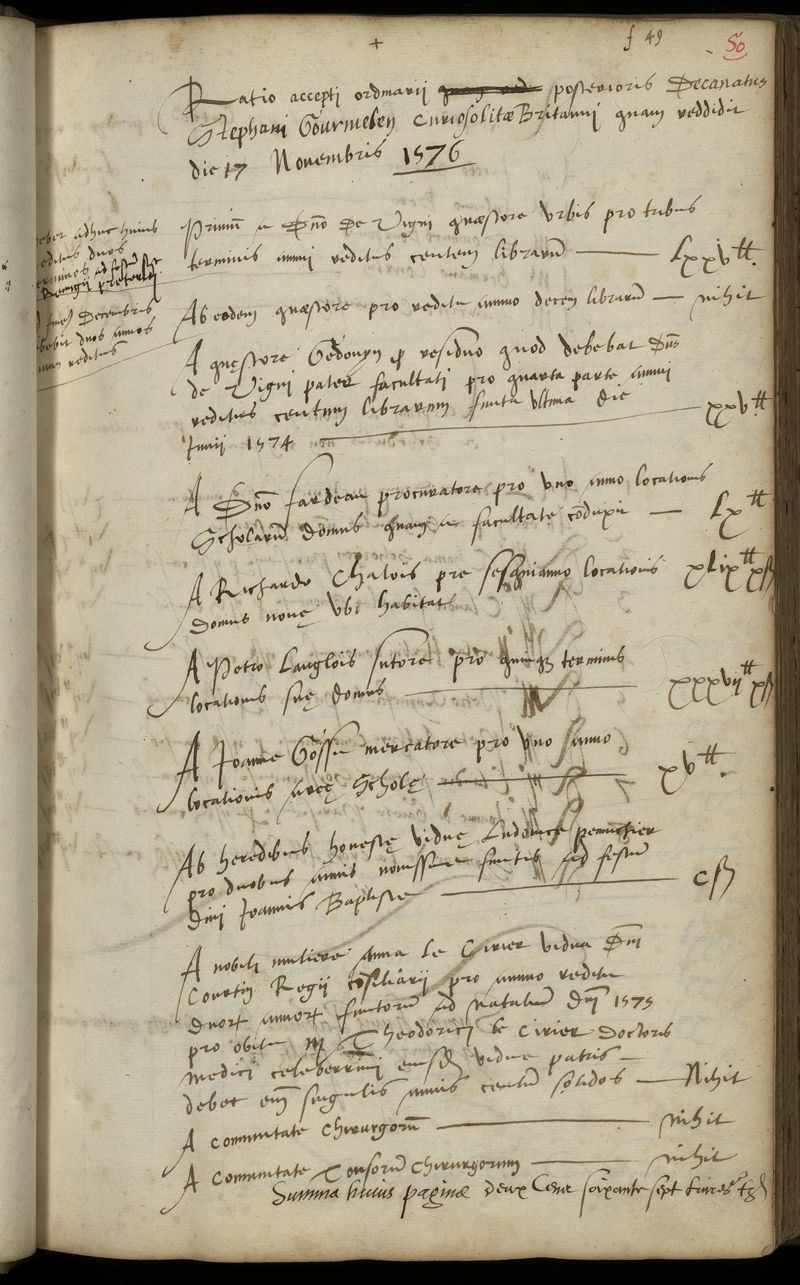 +
f 49
50
Ratio accepti ordinarii posterioris Decanatus
Stephani Gourmelen Curiosolitæ Britanni quam reddidit
die 17 Novembris 1576
debet adhuc huius
reditus duos
terminos ad festum
Remigii præteriti
Decembris
debebit duos annos
reditus
Primũ a Dño De Vigni quæstore urbis pro tribus
terminis annui reditus centum librarũ — Lxxv ℔.
Ab eodem quæstore pro reditu annuo decem librarũ — nihil
A quęstore Gedouyn residuo quod debebat Dñs
de Vigni pater facultati pro quarta parte annui
reditus centum librarum finita ultima die
Junii 1574 — xxv ℔
A Dño fardeau procuratore pro uno anno locationis
Scholarũ domus quam a facultate cõduxit — Lx ℔
A Richardo Chalois pro locationis
domus novę ubi habitat xLix ℔ xß
A Petro Langlois sutore pro quinq terminis
locationis suę domus — xxxvii ℔ xß
A Joanne Gossin mercatore pro uno anno
locationis areę Scholę — xv ℔.
Ab heredibus honestę viduę Ludovicę
pro duobus annis novissime finitis ad festum
divi Joannis Baptistę — cß
A nobili muliere Anna Le Cirier vidua Dñi
Courtin Regii cõsiliarii pro annuo reditu
duorũ annorũ finitorũ ad natalem Dñi 1575
pro obitu M Theodorici le Cirier doctoris
medici celeberrimi eiusdẽ viduæ patris —
debet enĩ singulis annis centũ solidos — Nihil
A comunitate chirurgorũ — nihil
A comunitate Tonsorũ chirurgorum — nihil
Summa huius paginæ deux Cent soixante sept Livres